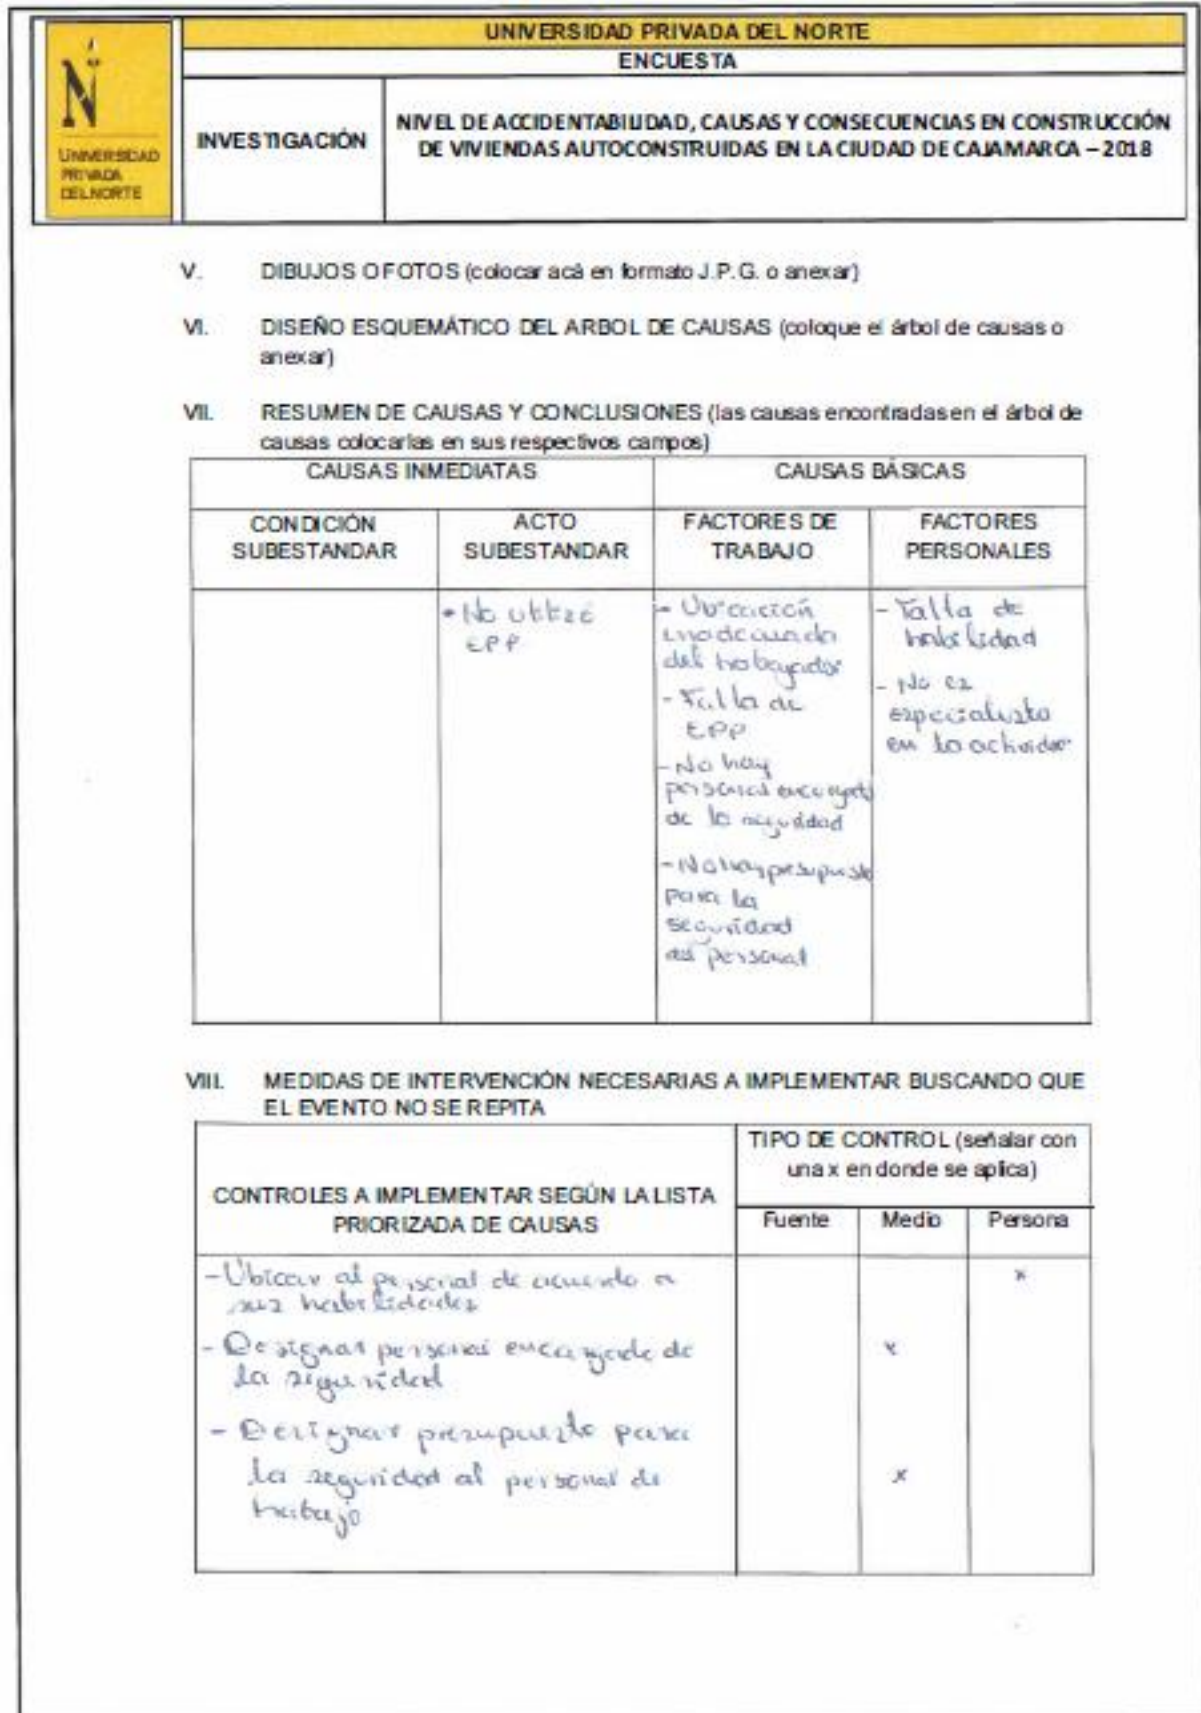 UNIVERSIDAD
PRIVADA
DEL NORTE
UNIVERSIDAD PRIVADA DEL NORTE
ENCUESTA
INVESTIGACIÓN
NIVEL DE ACCIDENTABILIDAD, CAUSAS Y CONSECUENCIAS EN CONSTRUCCIÓN
DE VIVIENDAS AUTOCONSTRUIDAS EN LA CIUDAD DE CAJAMARCA – 2018
V. DIBUJOS O FOTOS (colocar acá en formato J.P.G. o anexar)
VI. DISEÑO ESQUEMÁTICO DEL ARBOL DE CAUSAS (coloque el árbol de causas o
anexar)
VII. RESUMEN DE CAUSAS Y CONCLUSIONES (las causas encontradas en el árbol de
causas colocarlas en sus respectivos campos)
CAUSAS INMEDIATAS
CAUSAS BÁSICAS
CONDICIÓN
SUBESTANDAR
ACTO
SUBESTANDAR
FACTORES DE
TRABAJO
FACTORES
PERSONALES
- No utilizé
EPP
- Ubicación
inadecuada
del trabajador
- Falta de
EPP
- No hay
personal encargado
de la seguridad
- No hay presupuesto
para la
seguridad
del personal
- Falta de
habilidad
- No es
especialista
en la actividad
VIII. MEDIDAS DE INTERVENCIÓN NECESARIAS A IMPLEMENTAR BUSCANDO QUE
EL EVENTO NO SE REPITA
CONTROLES A IMPLEMENTAR SEGÚN LA LISTA
PRIORIZADA DE CAUSAS
TIPO DE CONTROL (señalar con
una x en donde se aplica)
Fuente Medio Persona
- Ubicar al personal de acuerdo a
sus habilidades
x
- Designar personal encargado de
la seguridad
x
- Designar presupuesto para
la seguridad al personal de
trabajo
x